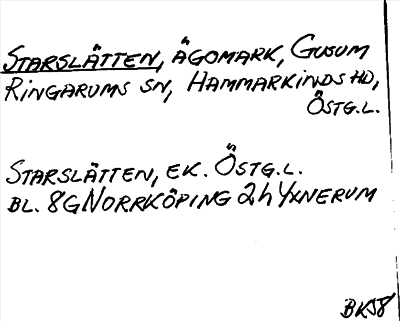 STARSLÄTTEN, ÄGOMARK, GUSUM
RINGARUMS SN, HAMMARKINDS HD,
ÖSTG.L.
STARSLÄTTEN, EK. ÖSTG.L.
BL. 8G NORRKÖPING 2h YXNERUM
BK58